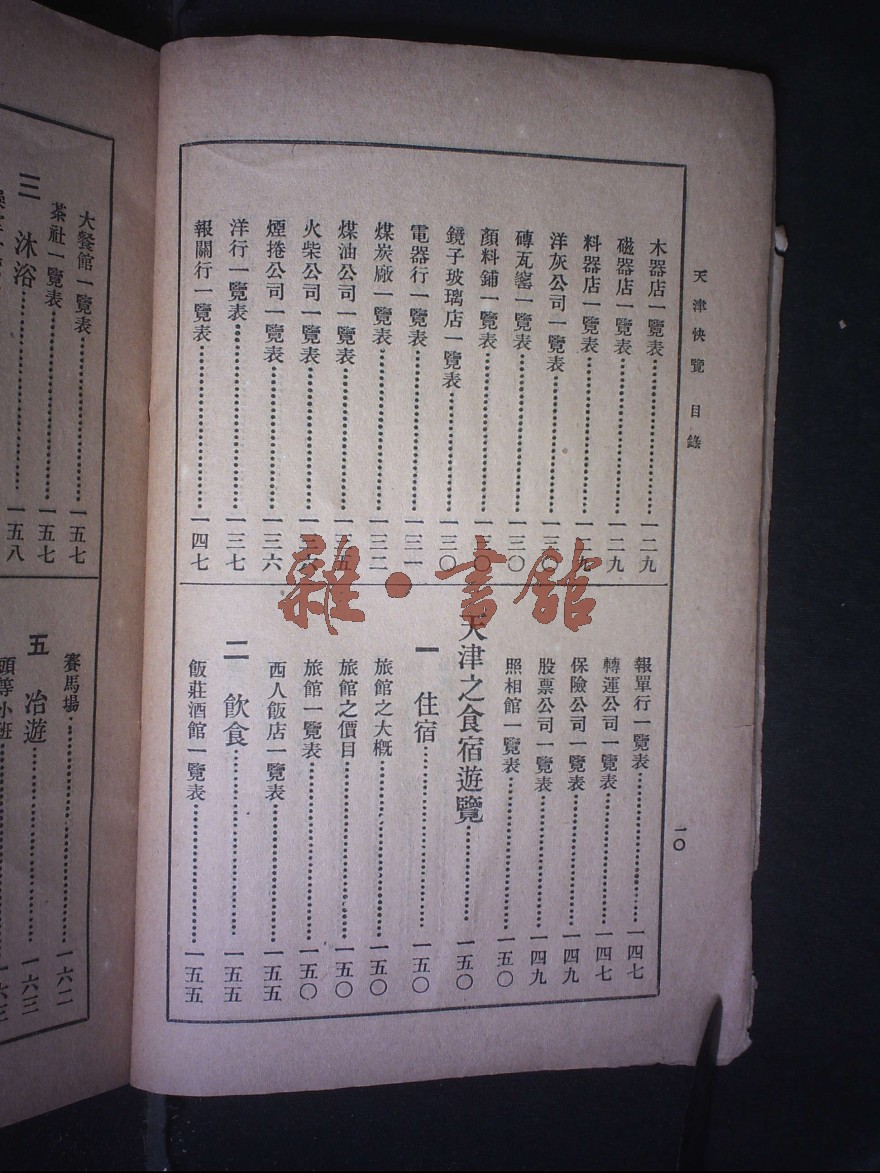 天津快覽 目錄
一〇
木器店一覽表 一二九
磁器店一覽表 一二九
料器店一覽表 一二九
洋灰公司一覽表 一三〇
磚瓦窰一覽表 一三〇
顏料鋪一覽表 一三〇
鏡子玻璃店一覽表 一三〇
電器行一覽表 一三一
煤炭廠一覽表 一三二
煤油公司一覽表
火柴公司一覽表
煙捲公司一覽表 一三六
洋行一覽表 一三七
報關行一覽表 一四七
報單行一覽表 一四七
轉運公司一覽表 一四七
保險公司一覽表 一四九
股票公司一覽表 一四九
照相館一覽表 一五〇
天津之食宿遊覽 一五〇
一 住宿 一五〇
旅館之大概 一五〇
旅館之價目 一五〇
旅館一覽表 一五〇
西人飯店一覽表 一五五
二 飲食 一五五
飯莊酒館一覽表 一五五
大餐館一覽表 一五七
茶社一覽表 一五七
三 沐浴 一五八
賽馬場 一六二
五 冶遊 一六三
頭等小班
雜·書館